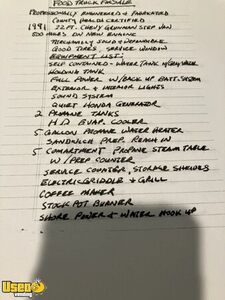 FOOD TRUCK FOR SALE
PROFESSIONALLY ENGINEERED & FABRICATED
COUNTY HEALTH CERTIFIED
1991 22FT. CHEVY GRUMMAN STEP VAN
500 MILES ON NEW ENGINE
MECHANICALLY SOUND & DEPENDABLE
GOOD TIRES, SERVICE WINDOW
EQUIPMENT LIST:
SELF CONTAINED - WATER TANK W/GREYWATER
HOLDING TANK
FULL POWER W/BACK UP BATT. SYSTEM
EXTERIOR & INTERIOR LIGHTS
SOUND SYSTEM
QUIET HONDA GENERATOR
2 PROPANE TANKS
H.D. EVAP. COOLER
5 GALLON PROPANE WATER HEATER
SANDWICH PREP. REACH IN
5 COMPARTMENT PROPANE STEAM TABLE
W/ PREP COUNTER
SERVICE COUNTER, STORAGE SHELVES
ELECTRIC GRIDDLE & GRILL
COFFEE MAKER
STOCK POT BURNER
SHORE POWER & WATER HOOK UP
UsedVending